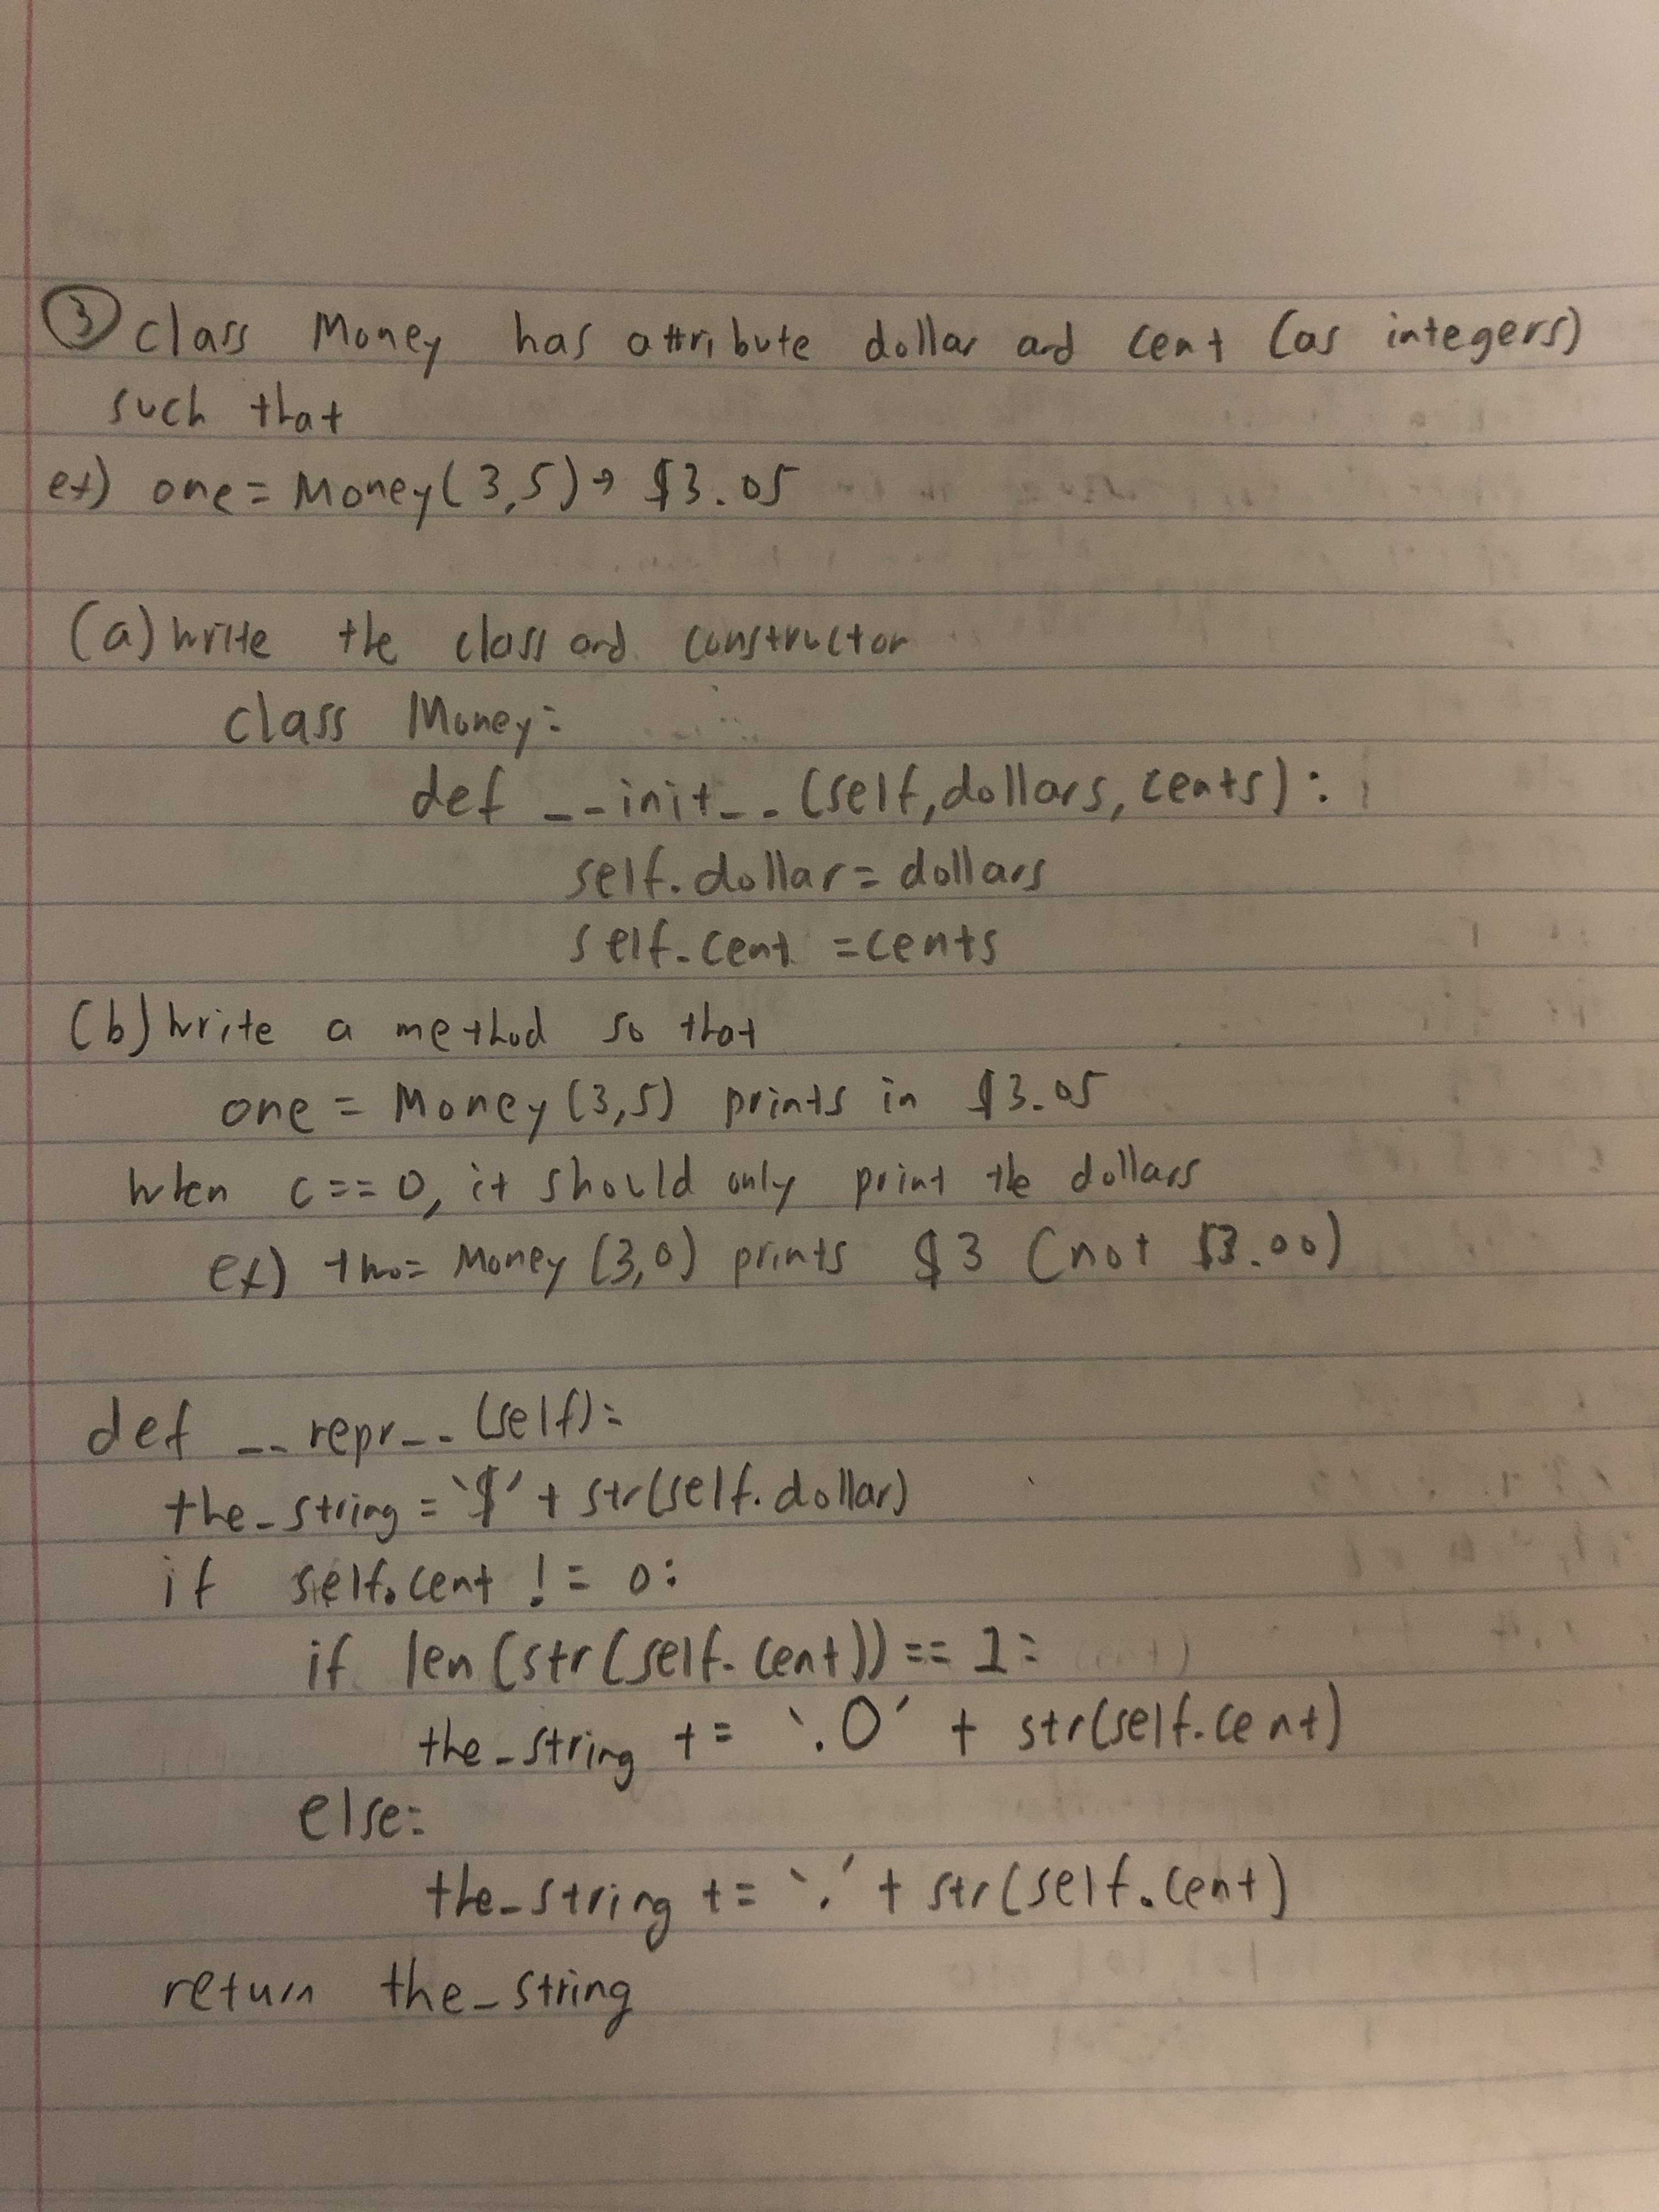 ③ class Money has attribute dollar and cent (as integers)
such that
ex) one = Money(3,5) → $3.05
(a) write the class and constructor
class Money:
def __init__(self, dollars, cents):
self.dollar = dollars
self.cent = cents
(b) write a method so that
one = Money(3,5) prints in $3.05
when c==0, it should only print the dollars
ex) two= Money (3,0) prints $3 (not $3.00)
def __repr__(self):
the_string = '$' + str(self.dollar)
if self.cent != 0:
if len(str(self.cent)) == 1:
the_string += '.0' + str(self.cent)
else:
the_string += '.' + str(self.cent)
return the_string